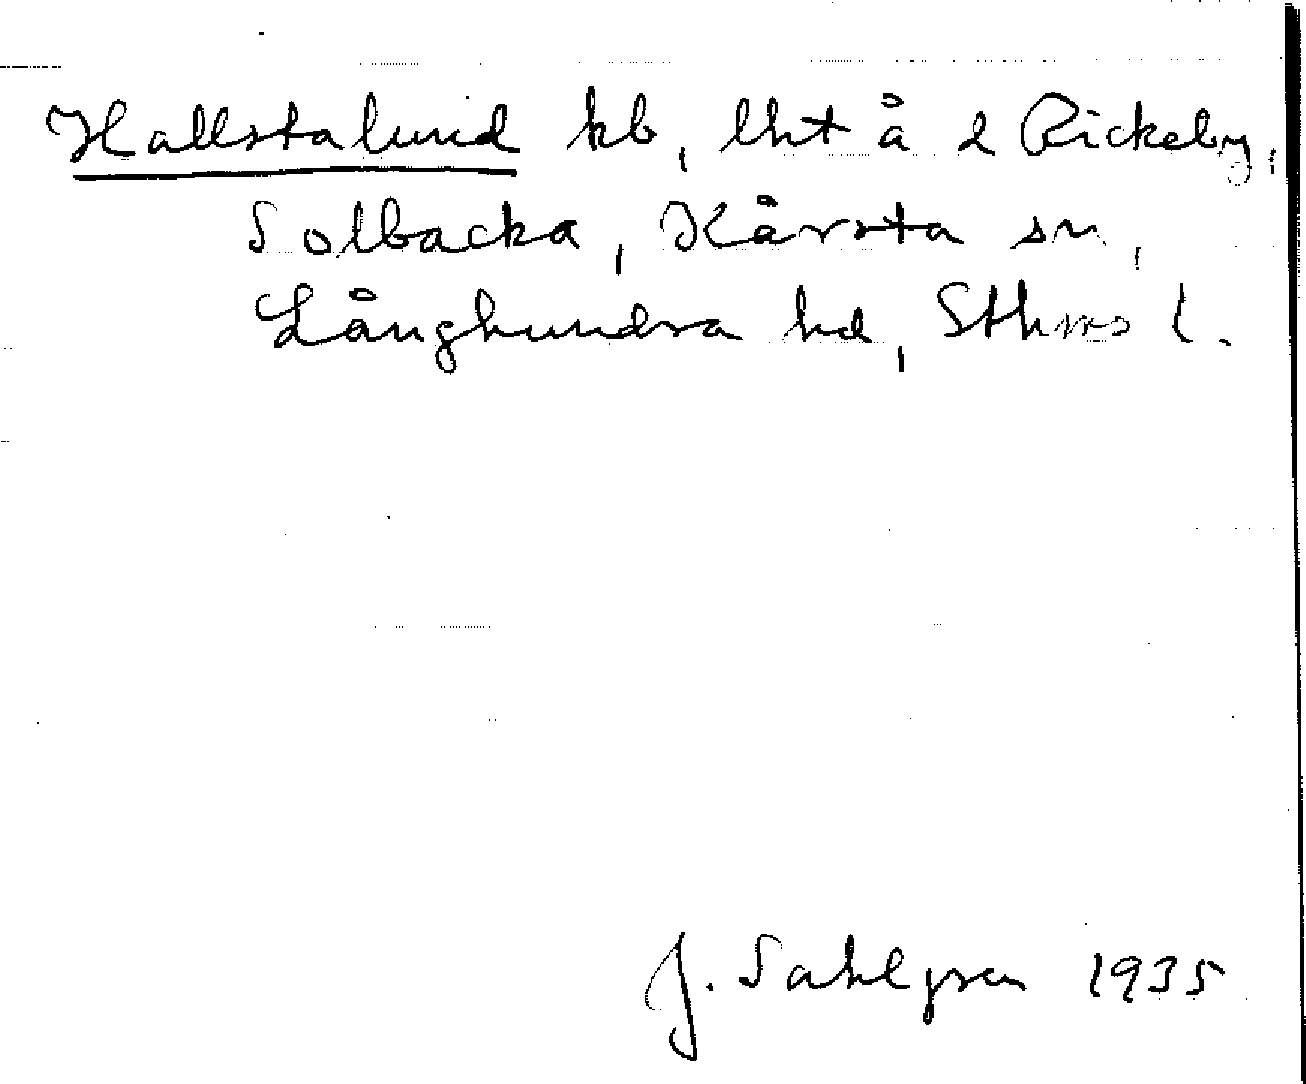 Hallstalund kb, lht å 2 Rickeby,
Solbacka, Kårsta sn,
Långhundra hd, Sthms l.
J. Sahlgren 1935